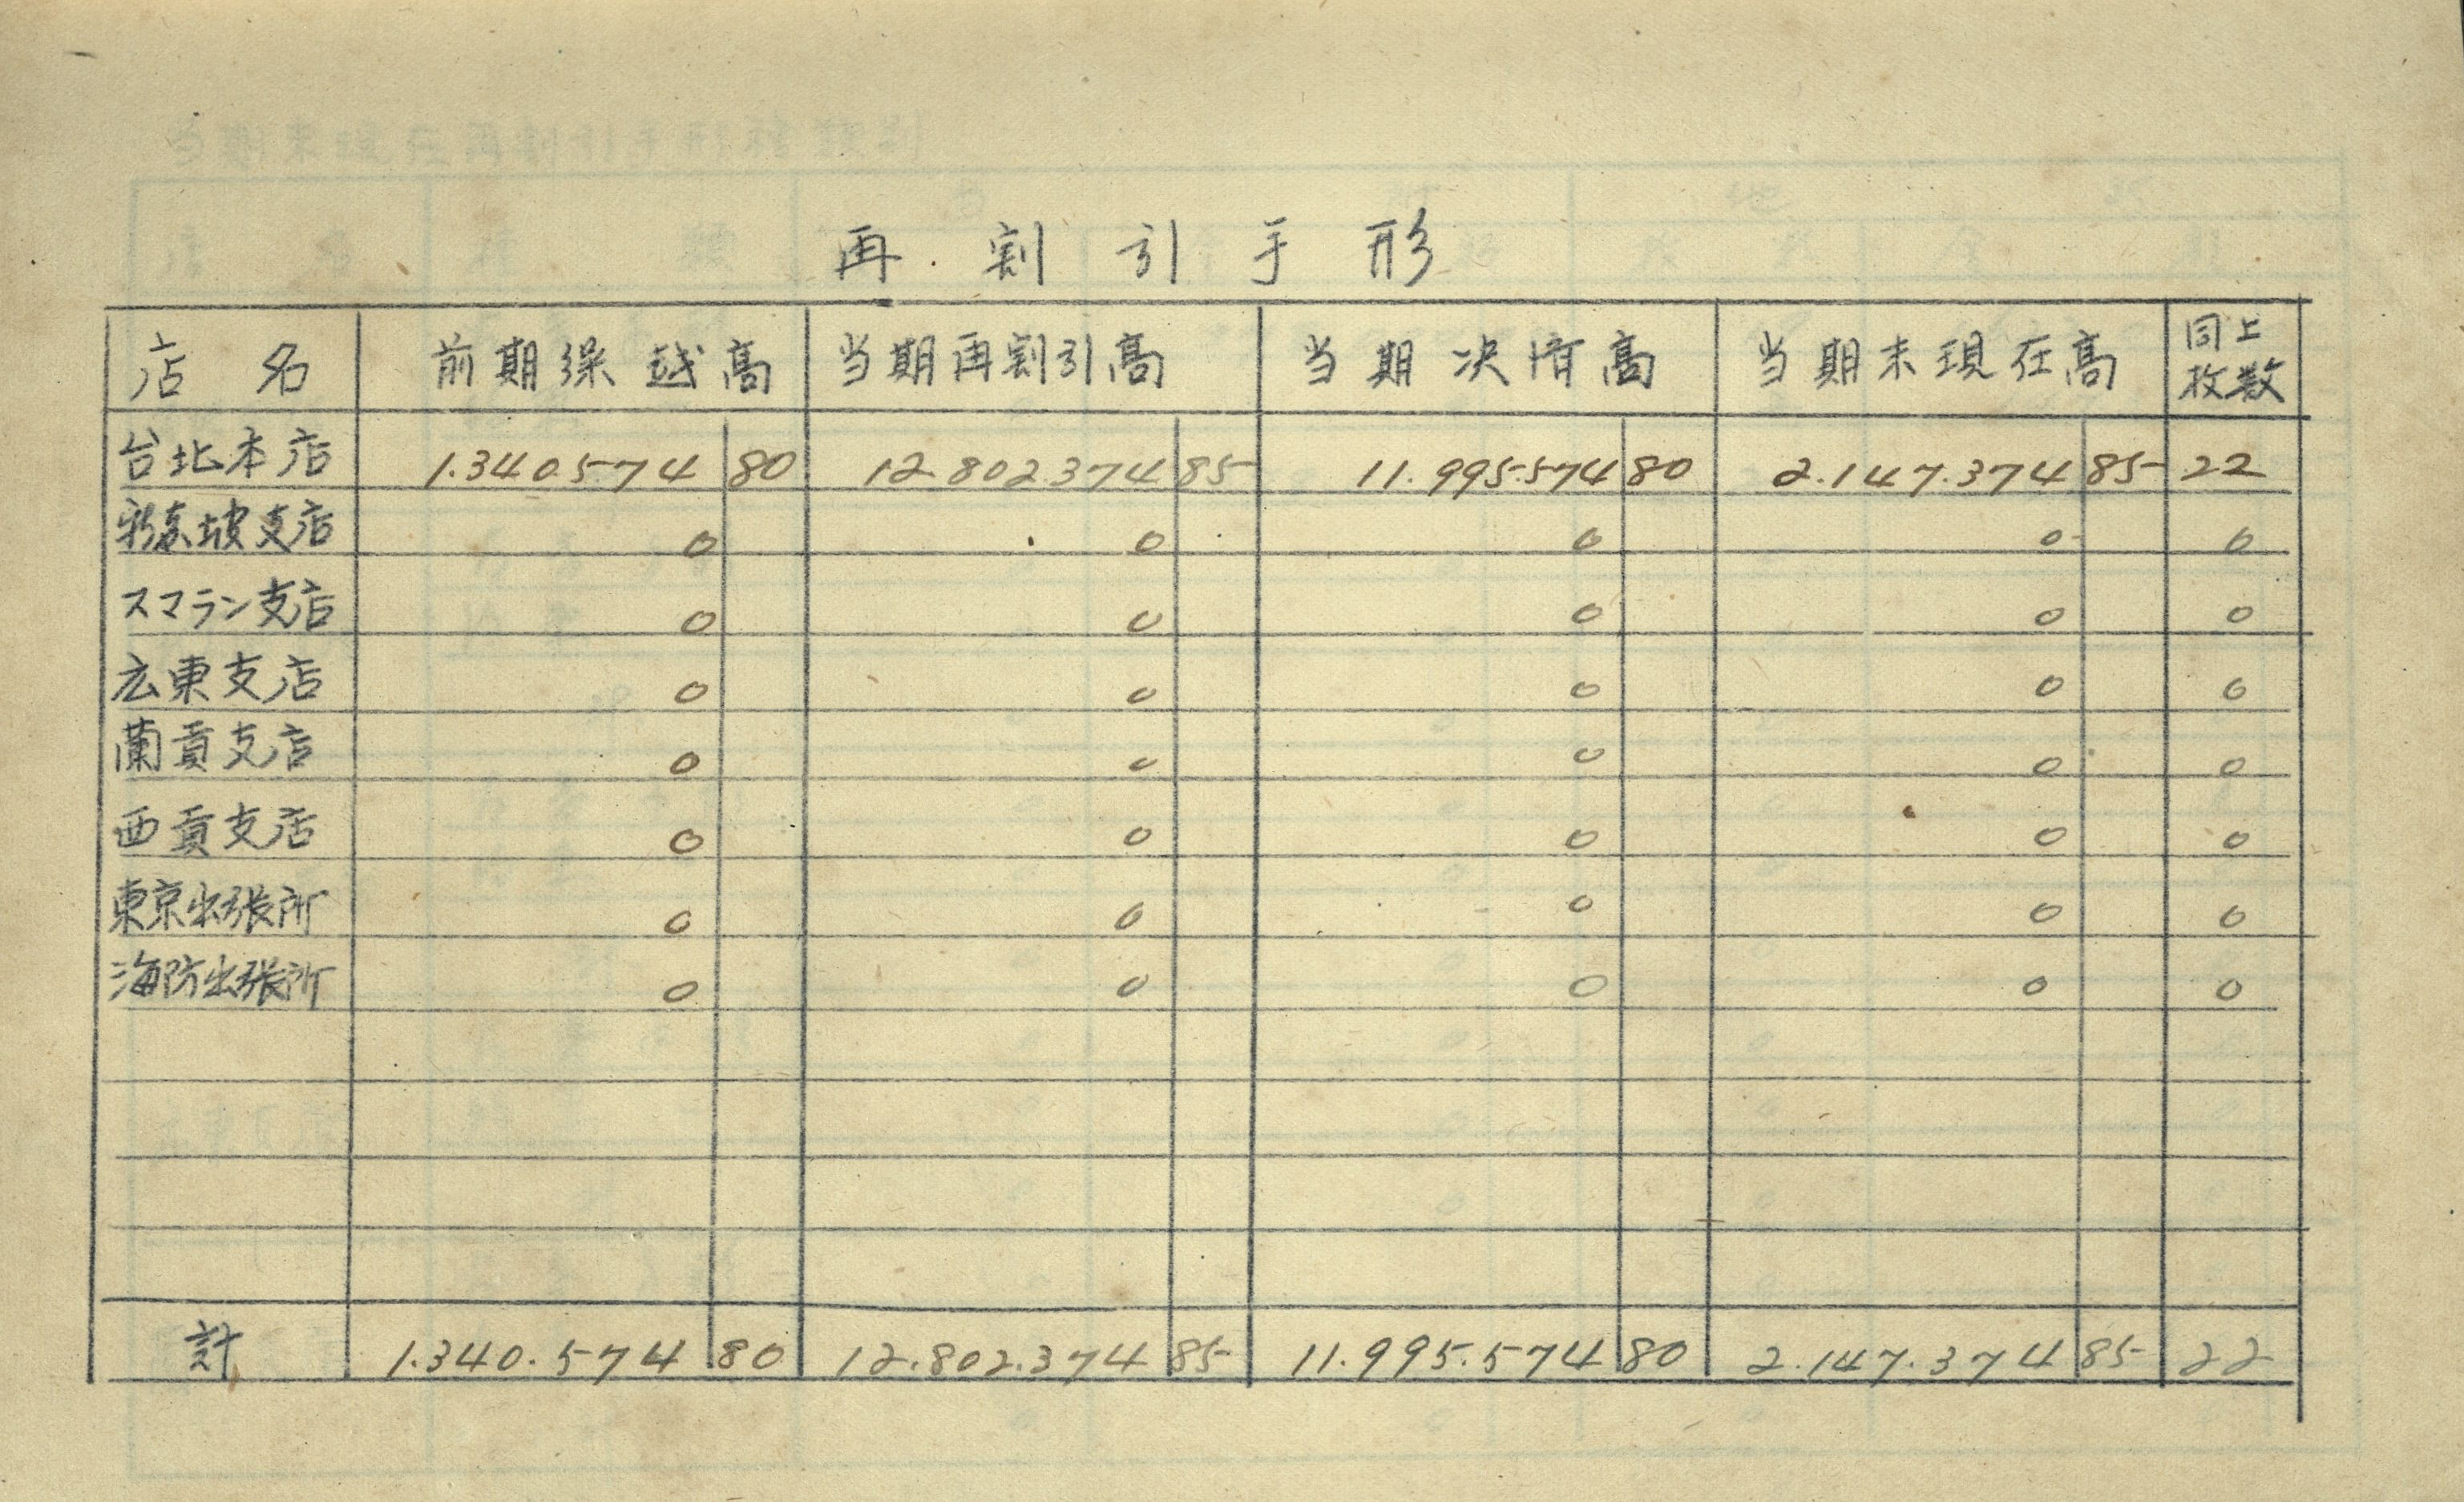 再割引手形
店名 前期繰越高 当期再割引高 当期決済高 当期末現在高 同上枚数
台北本店 1.340.574 80 12.802.374 85 11.995.574 80 2.147.374 85 22
新嘉坡支店 0 0 0 0 0
スマラン支店 0 0 0 0 0
広東支店 0 0 0 0 0
蘭貢支店 0 0 0 0 0
西貢支店 0 0 0 0 0
東京出張所 0 0 0 0 0
海防出張所 0 0 0 0 0
計 1.340.574 80 12.802.374 85 11.995.574 80 2.147.374 85 22